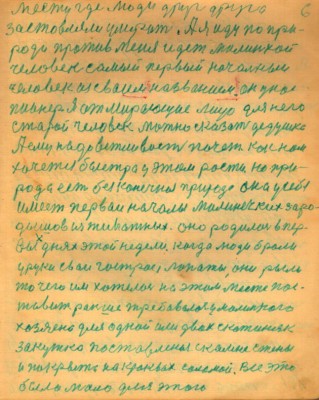 месту где люди друг друга 6
заставляли умират. А я иду по при-
роды против меня идет маленкой
человек самый первый началный
человек их сваей названием он унас
пианер Я отмирающие лицо для него
старой человек можно сказат дедушка
А ему надо вежливост почет как нам
хочетса быстра у этом рости, но при-
рода ест бесконечная природо она у себя
имеет первая началы маленких заро-
дышов их животных. оно родилос в пер-
вых днях этой недели, когда люди брали
у руки сваи вострые лопаты, они рыли
то чего им хотелос на этом месте пос-
тавит ран ше требовалос у маленкого
хозяено для одной или двох скотиняк
закутка поставленые скамие стены
и покрыта на кроквах соломой. Все это
была мала для этого